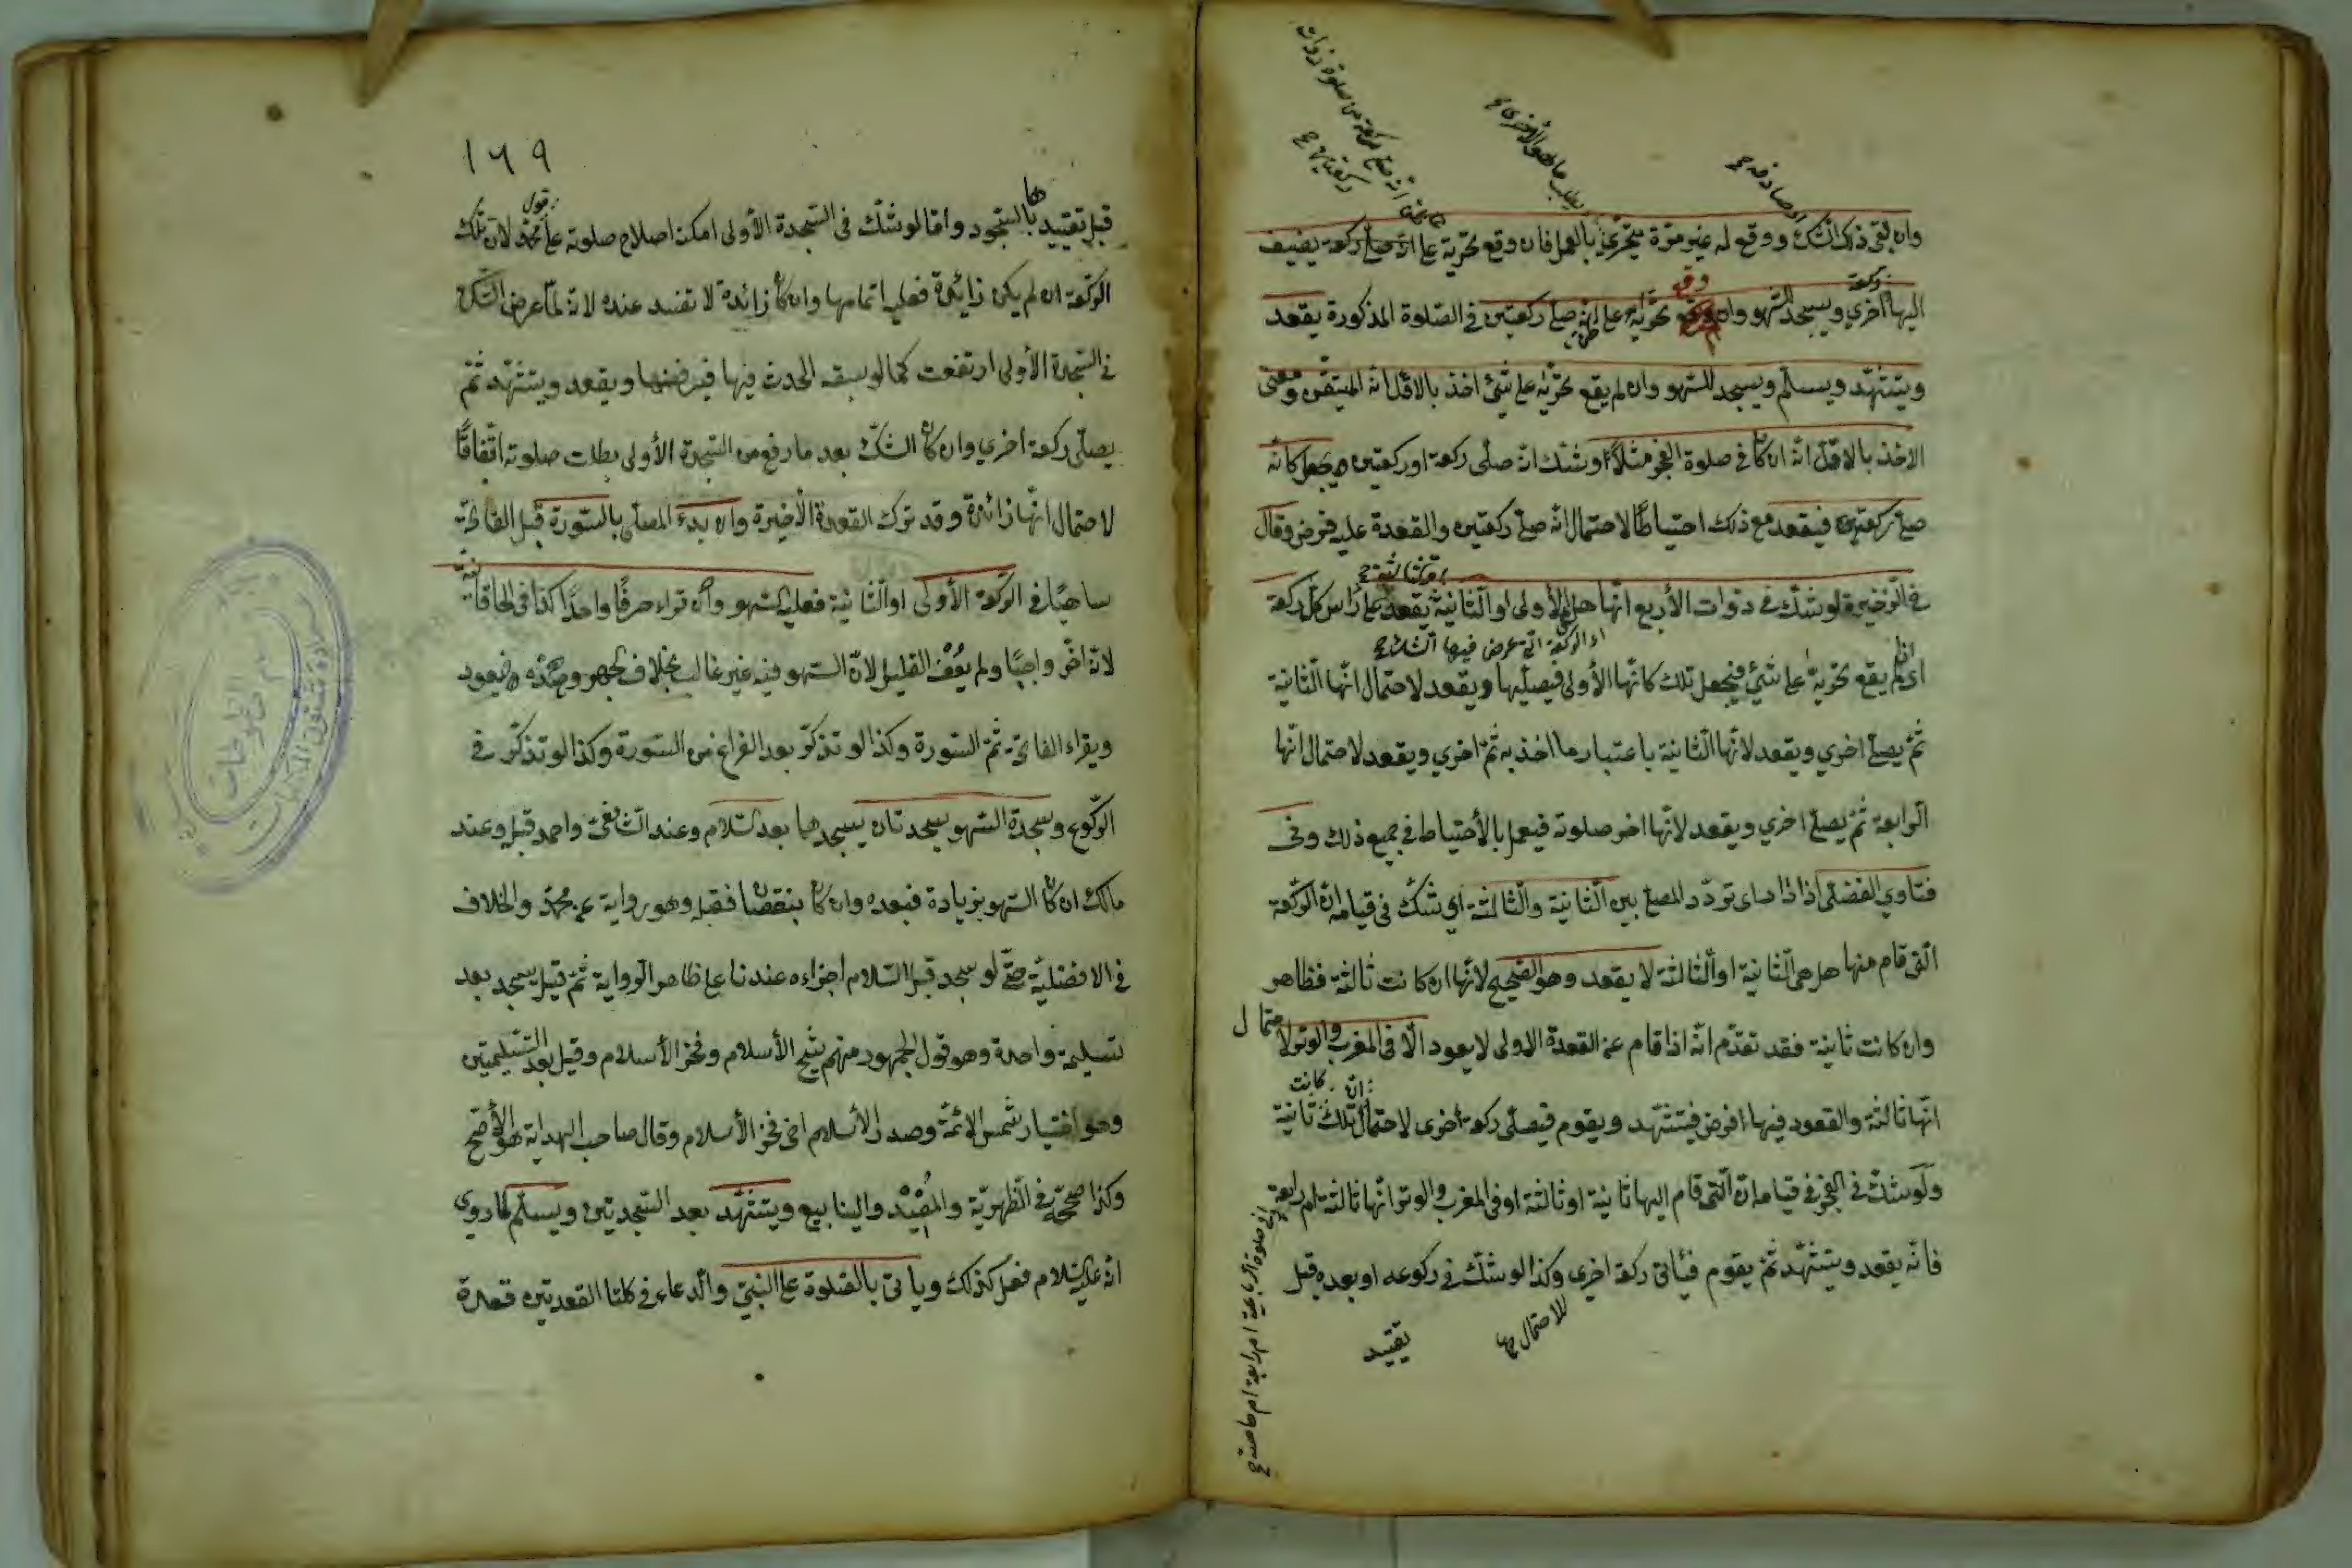 وان لقى ذلك الشك ووقع له غير مرة يتحرى بالعمل فان وقع تحريه على انه صلى ركعة يضيف
اليها اخرى ويسجد للسهو وان وقع تحريه على انه صلى ركعتين في الصلوة المذكورة يقعد
ويتشهد ويسلم ويسجد للسهو وان لم يقع تحريه على شئ اخذ بالاقل انه المتيقن ومعنى
الاخذ بالاقل انه ان كان في صلوة الفجر مثلا وشك انه صلى ركعة او ركعتين يجعل كانه
صلى ركعتين فيقعد مع ذلك احتياطا لاحتمال انه صلى ركعتين والقعدة عليه فرض وقال
في الذخيرة لو شك في ذوات الأربع انها هل هى الأولى او الثانية يقعد على رأس كل ركعة
او الركعة التي عرض فيها الشك
اى لم يقع تحريه على شئ فيجعل تلك كانها الأولى فيصليها ويقعد لاحتمال انها الثانية
ثم يصلى اخرى ويقعد لانها الثانية باعتبار ما اخذ به ثم اخرى ويقعد لاحتمال انها
الرابعة ثم يصلى اخرى ويقعد لانها اخر صلوته فيعمل بالأحتياط في جميع ذلك وفي
فتاوى الفضلى اذا تردد المصلى بين الثانية والثالثة اى شك في قيامه ان الركعة
التى قام منها هل هى الثانية او الثالثة لا يقعد وهو الصحيح لانها ان كانت ثالثة فظاهر
وان كانت ثانية فقد تقدم انه اذا قام عن القعدة الاولى لا يعود الا فى المغرب والوتر لاحتمال
انها ثالثة والقعود فيها افرض فيتشهد ويقوم فيصلى ركعة اخرى لاحتمال ان تلك كانت ثانية
ولو شك في الفجر في قيامه ان التى قام اليها ثانية او ثالثة او فى المغرب والوتر انها ثالثة ام رابعة
فانه يقعد ويتشهد ثم يقوم فيأتى ركعة اخرى وكذا لو شك في ركوعه او بعده قبل
للاحتمال
تقييد
١٦٩
قبل تقييدها بالسجود واما لو شك فى السجدة الأولى امكن اصلاح صلوته على قول محمد لان تلك
الركعة ان لم يكن زائدة فعليه اتمامها وان كان زائدة لا تفسد عنده لانه لما عرض الشك
في السجدة الأولى ارتفعت كما لو سبقه الحدث فيها فيرفضها ويقعد ويتشهد ثم
يصلى ركعة اخرى وان كان الشك بعد ما رفع من السجدة الأولى بطلت صلوته اتفاقا
لاحتمال انها زائدة وقد ترك القعدة الأخيرة وان بدء المصلى بالسورة قبل الفاتحة
ساهيا في الركعة الأولى او الثانية فعليه السهو وان قراء حرفا واحدا كذا فى الخاقانية
لانه اخر واجبا ولم يعف القليل لان السهو فيه غير غالب بخلاف الجهر وضده فيعود
ويقراء الفاتحة ثم السورة وكذا لو تذكر بعد الفراغ من السورة وكذا لو تذكر في
الركوع وسجدة السهو سجدتان يسجدهما بعد السلام وعند الشافعى واحمد قبله وعند
مالك ان كان السهو بزيادة فبعده وان كان بنقصان فقبله وهو رواية عن محمد والخلاف
في الافضلية حتى لو سجد قبل السلام اجزاءه عندنا على ظاهر الرواية ثم قيل يسجد بعد
تسليمة واحدة وهو قول الجمهور منهم شيخ الأسلام وفخر الأسلام وقيل بعد التسليمتين
وهو اختيار شمس الائمة وصدر الأسلام اخى فخر الأسلام وقال صاحب الهداية هو الأصح
وكذا صححه في الظهرية والمفيد والينابيع ويتشهد بعد السجدتين ويسلم لما روى
انه عليه السلام فعل كذلك ويأتى بالصلوة على النبى والدعاء في كلتا القعدتين قعدة